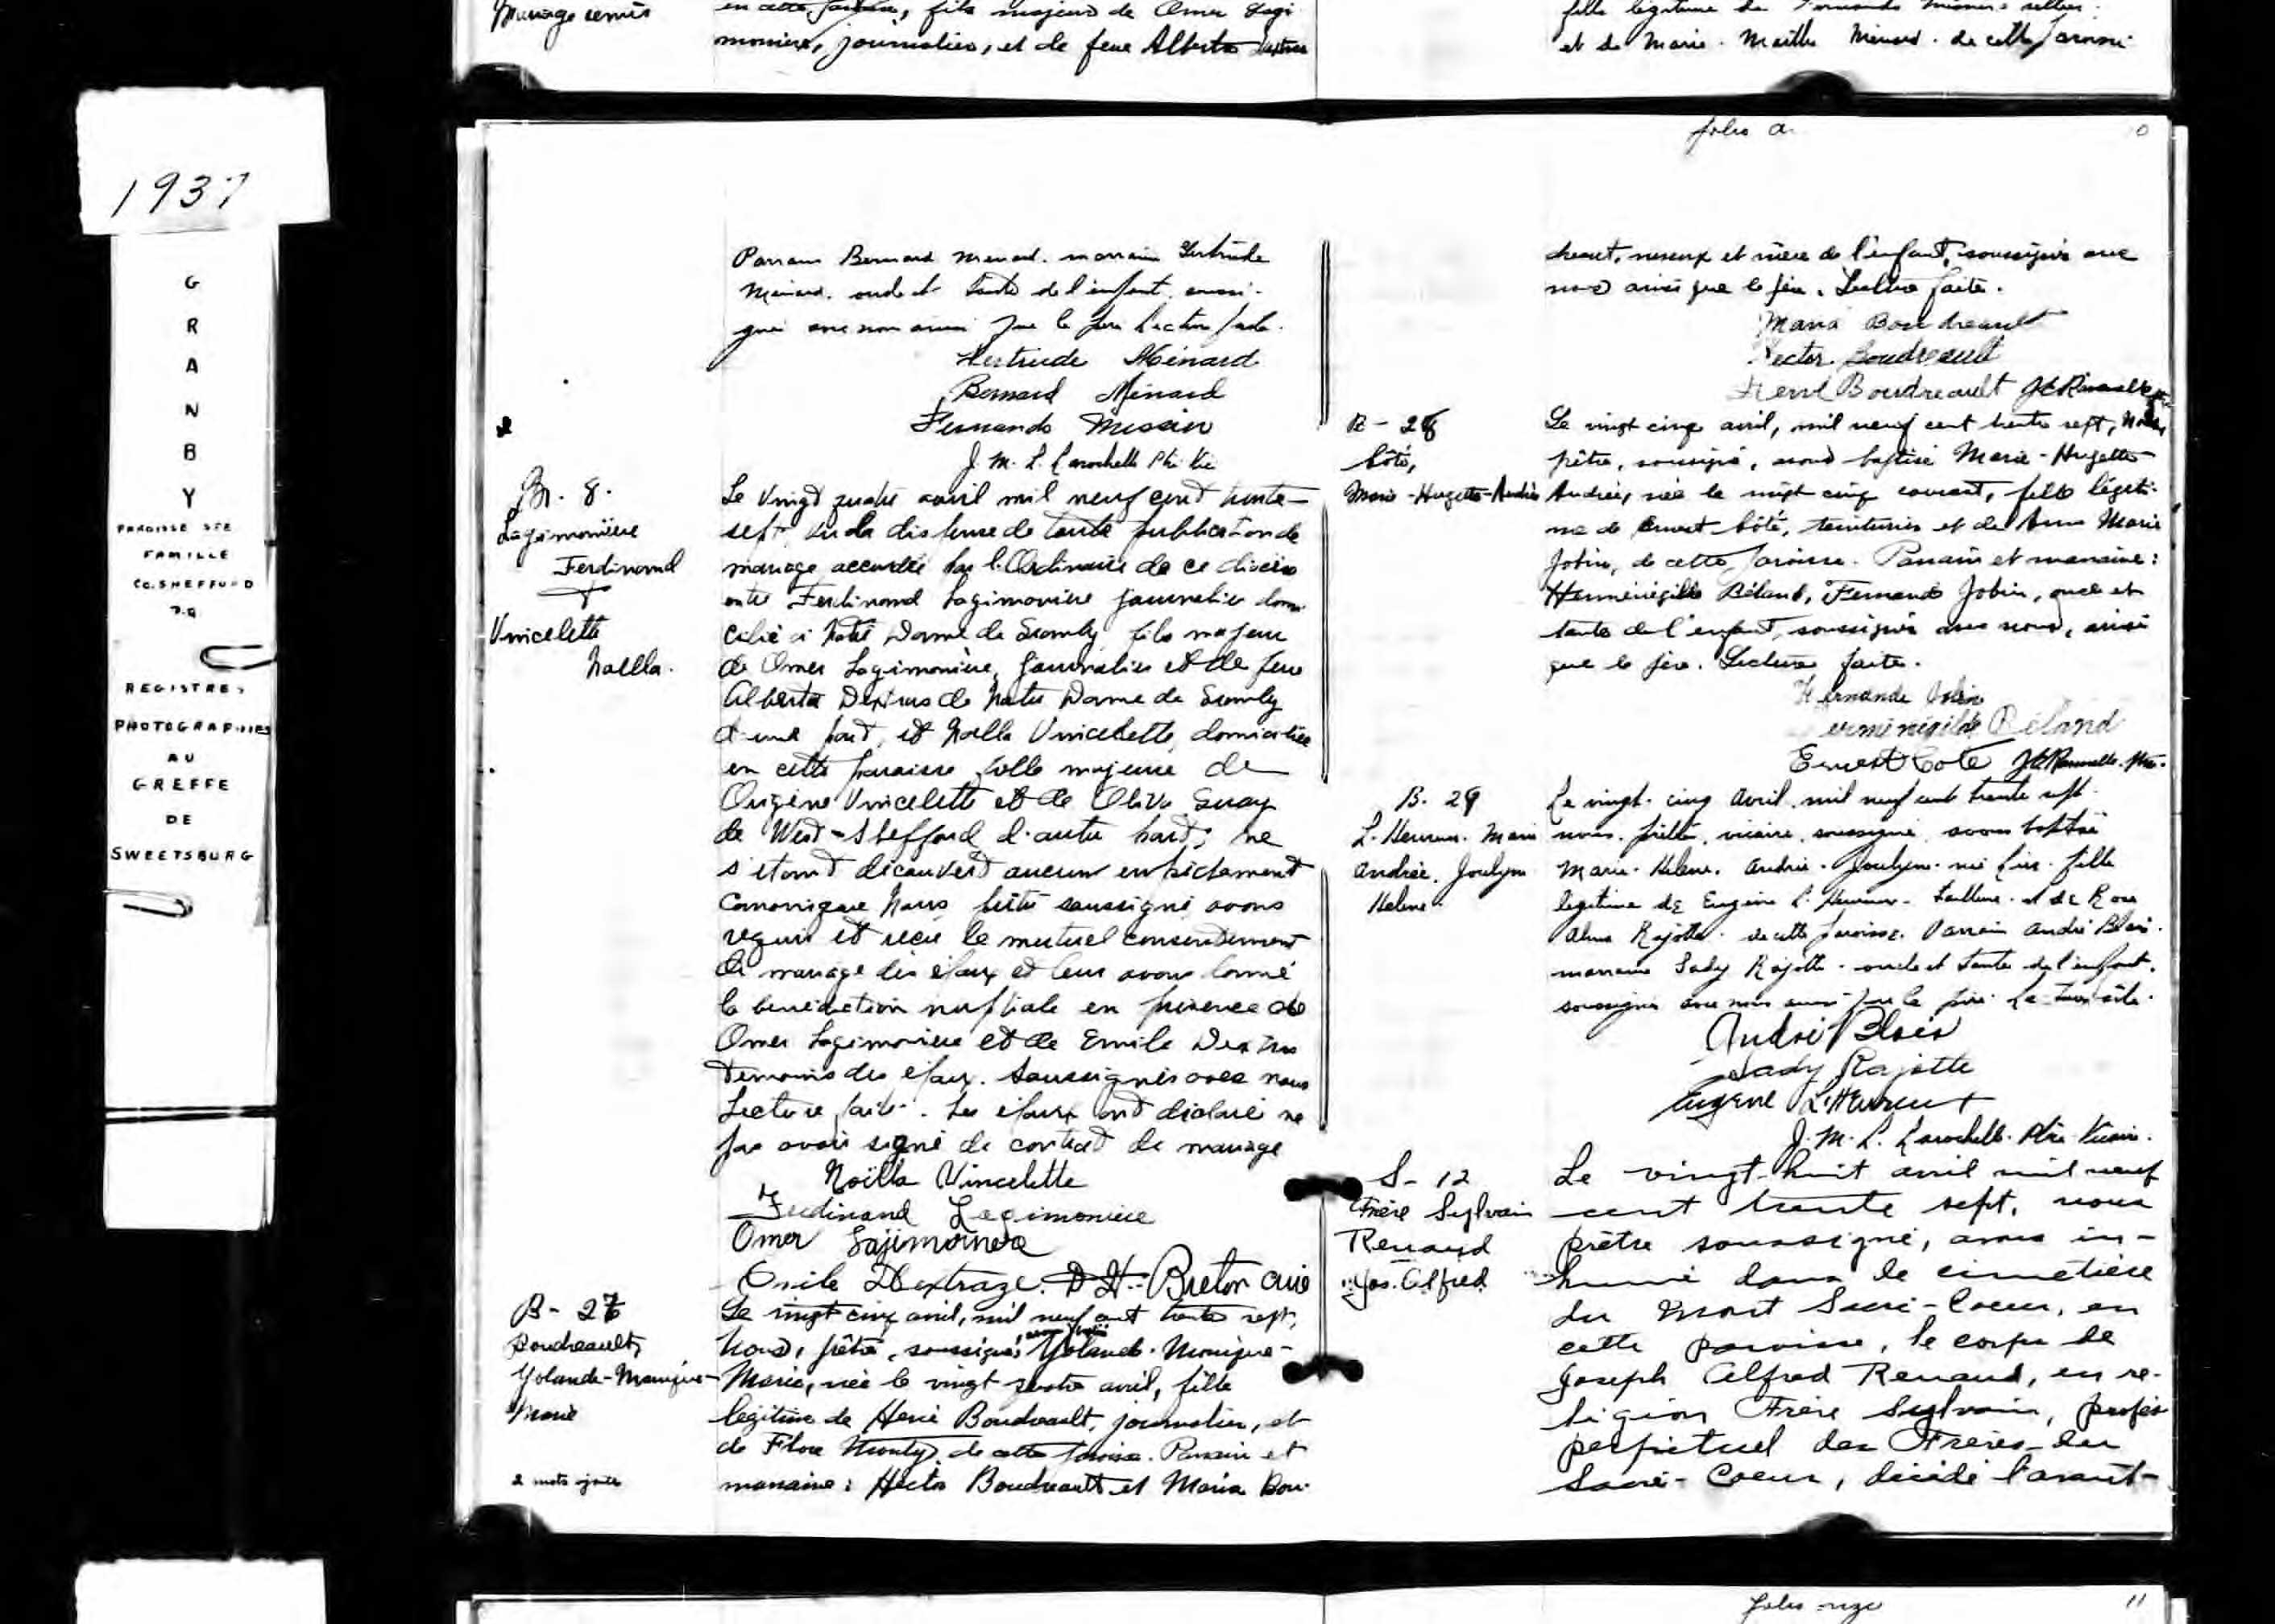 Mariage remis
en cette paroisse, fils majeur de Omer Lagi
monière, journalier, et de feue Alberta Dextras
fille légitime de Fernando
et de Marie Ménard. de cette paroisse
1937
G
R
A
N
B
Y
PAROISSE STE
FAMILLE
CO. SHEFFORD
P.Q
REGISTRES
PHOTOGRAPHIES
AU
GREFFE
DE
SWEETSBURG
Parrain Bernard Menard. marraine Gertrude
Menard. oncle et tante de l'enfant. soussi-
gnés avec nous ainsi que le père. Lecture faite.
Gertrude Ménard
Bernard Ménard
Fernando Messier
J. M. L. Larochelle Ptre Vic
M. 8.
Lagimonière
Ferdinand
+
Vincelette
Noella.
Le Vingt quatre avril mil neuf cent trente-
sept. Vu la dispense de toute publication de
mariage accordée par l'Ordinaire de ce diocèse
entre Ferdinand Lagimonière journalier domi
cilié à Notre Dame de Granby fils majeur
de Omer Lagimonière, journalier et de feue
Alberta Dextras de Notre Dame de Granby
d'une part, et Noella Vincelette, domiciliée
en cette paroisse fille majeure de
Origène Vincelette et de Oliva Guay
de West-Shefford d'autre part; ne
s'étant découvert aucun empêchement
canonique Nous prêtre soussigné avons
requis et reçu le mutuel consentement
de mariage des époux et leur avons donné
la bénédiction nuptiale en présence de
Omer Lagimonière et de Emile Dextras
témoins des époux. Soussignés avec nous
Lecture faite. Les époux ont déclaré ne
pas avoir signé de contrat de mariage
Noëlla Vincelette
Ferdinand Lagimonière
Omer Lajimonière
Emile Dextraze. D H. Breton curé
B - 27
Boudreault,
Yolande-Monique-
Marie
2 mots ajoutés
Le vingt cinq avril, mil neuf cent trente sept,
Nous, prêtre, soussigné, avons baptisé Yolande-Monique-
Marie, née le vingt quatre avril, fille
légitime de Henri Boudreault, journalier, et
de Flore Monty, de cette paroisse. Parrain et
marraine: Hector Boudreault et Maria Bou-
folio
dreault, et mère de l'enfant, soussignés avec
nous ainsi que le père. Lecture faite.
Maria Boudreault
Hector Boudreault
Henri Boudreault
B - 28
Côté,
Marie-Hugette-Andrée
Le vingt cinq avril, mil neuf cent trente sept, Nous,
prêtre, soussigné, avons baptisé Marie-Hugette
Andrée, née le vingt cinq courant, fille légiti-
me de Ernest Côté, teinturier et de Anna Marie
Jobin, de cette paroisse. Parrain et marraine:
Herménégilde Béland, Fernande Jobin, oncle et
tante de l'enfant, soussignés avec nous, ainsi
que le père. Lecture faite.
Fernande Jobin
Herménégilde Béland
Ernest Côté
B. 29
L'Heureux. Marie
Andrée. Jocelyne
Hélène.
Le vingt-cinq avril mil neuf cent trente sept.
nous. prêtre, vicaire, soussigné avons baptisé
Marie-Hélène. Andrée. Jocelyne. née hier. fille
légitime de Eugène L'Heureux. tailleur. et de Rose
Alma Rajotte. de cette paroisse. Parrain André Blais.
marraine Lady Rajotte. oncle et tante de l'enfant.
soussignés avec nous ainsi que le père. Lecture faite.
André Blais
Lady Rajotte
Eugène L'Heureux
J. M. L. Larochelle. Ptre Vicaire.
S - 12
Frère Sylvain
Renaud
Jos. Alfred
Le vingt-huit avril mil neuf
cent trente sept, nous
prêtre soussigné, avons in-
humé dans le cimetière
du Mont Sacré-Coeur, en
cette paroisse, le corps de
Joseph Alfred Renaud, en re-
ligion Frère Sylvain, profès
perpétuel des Frères du
Sacré-Coeur, décédé l'avant-
folio onze
11